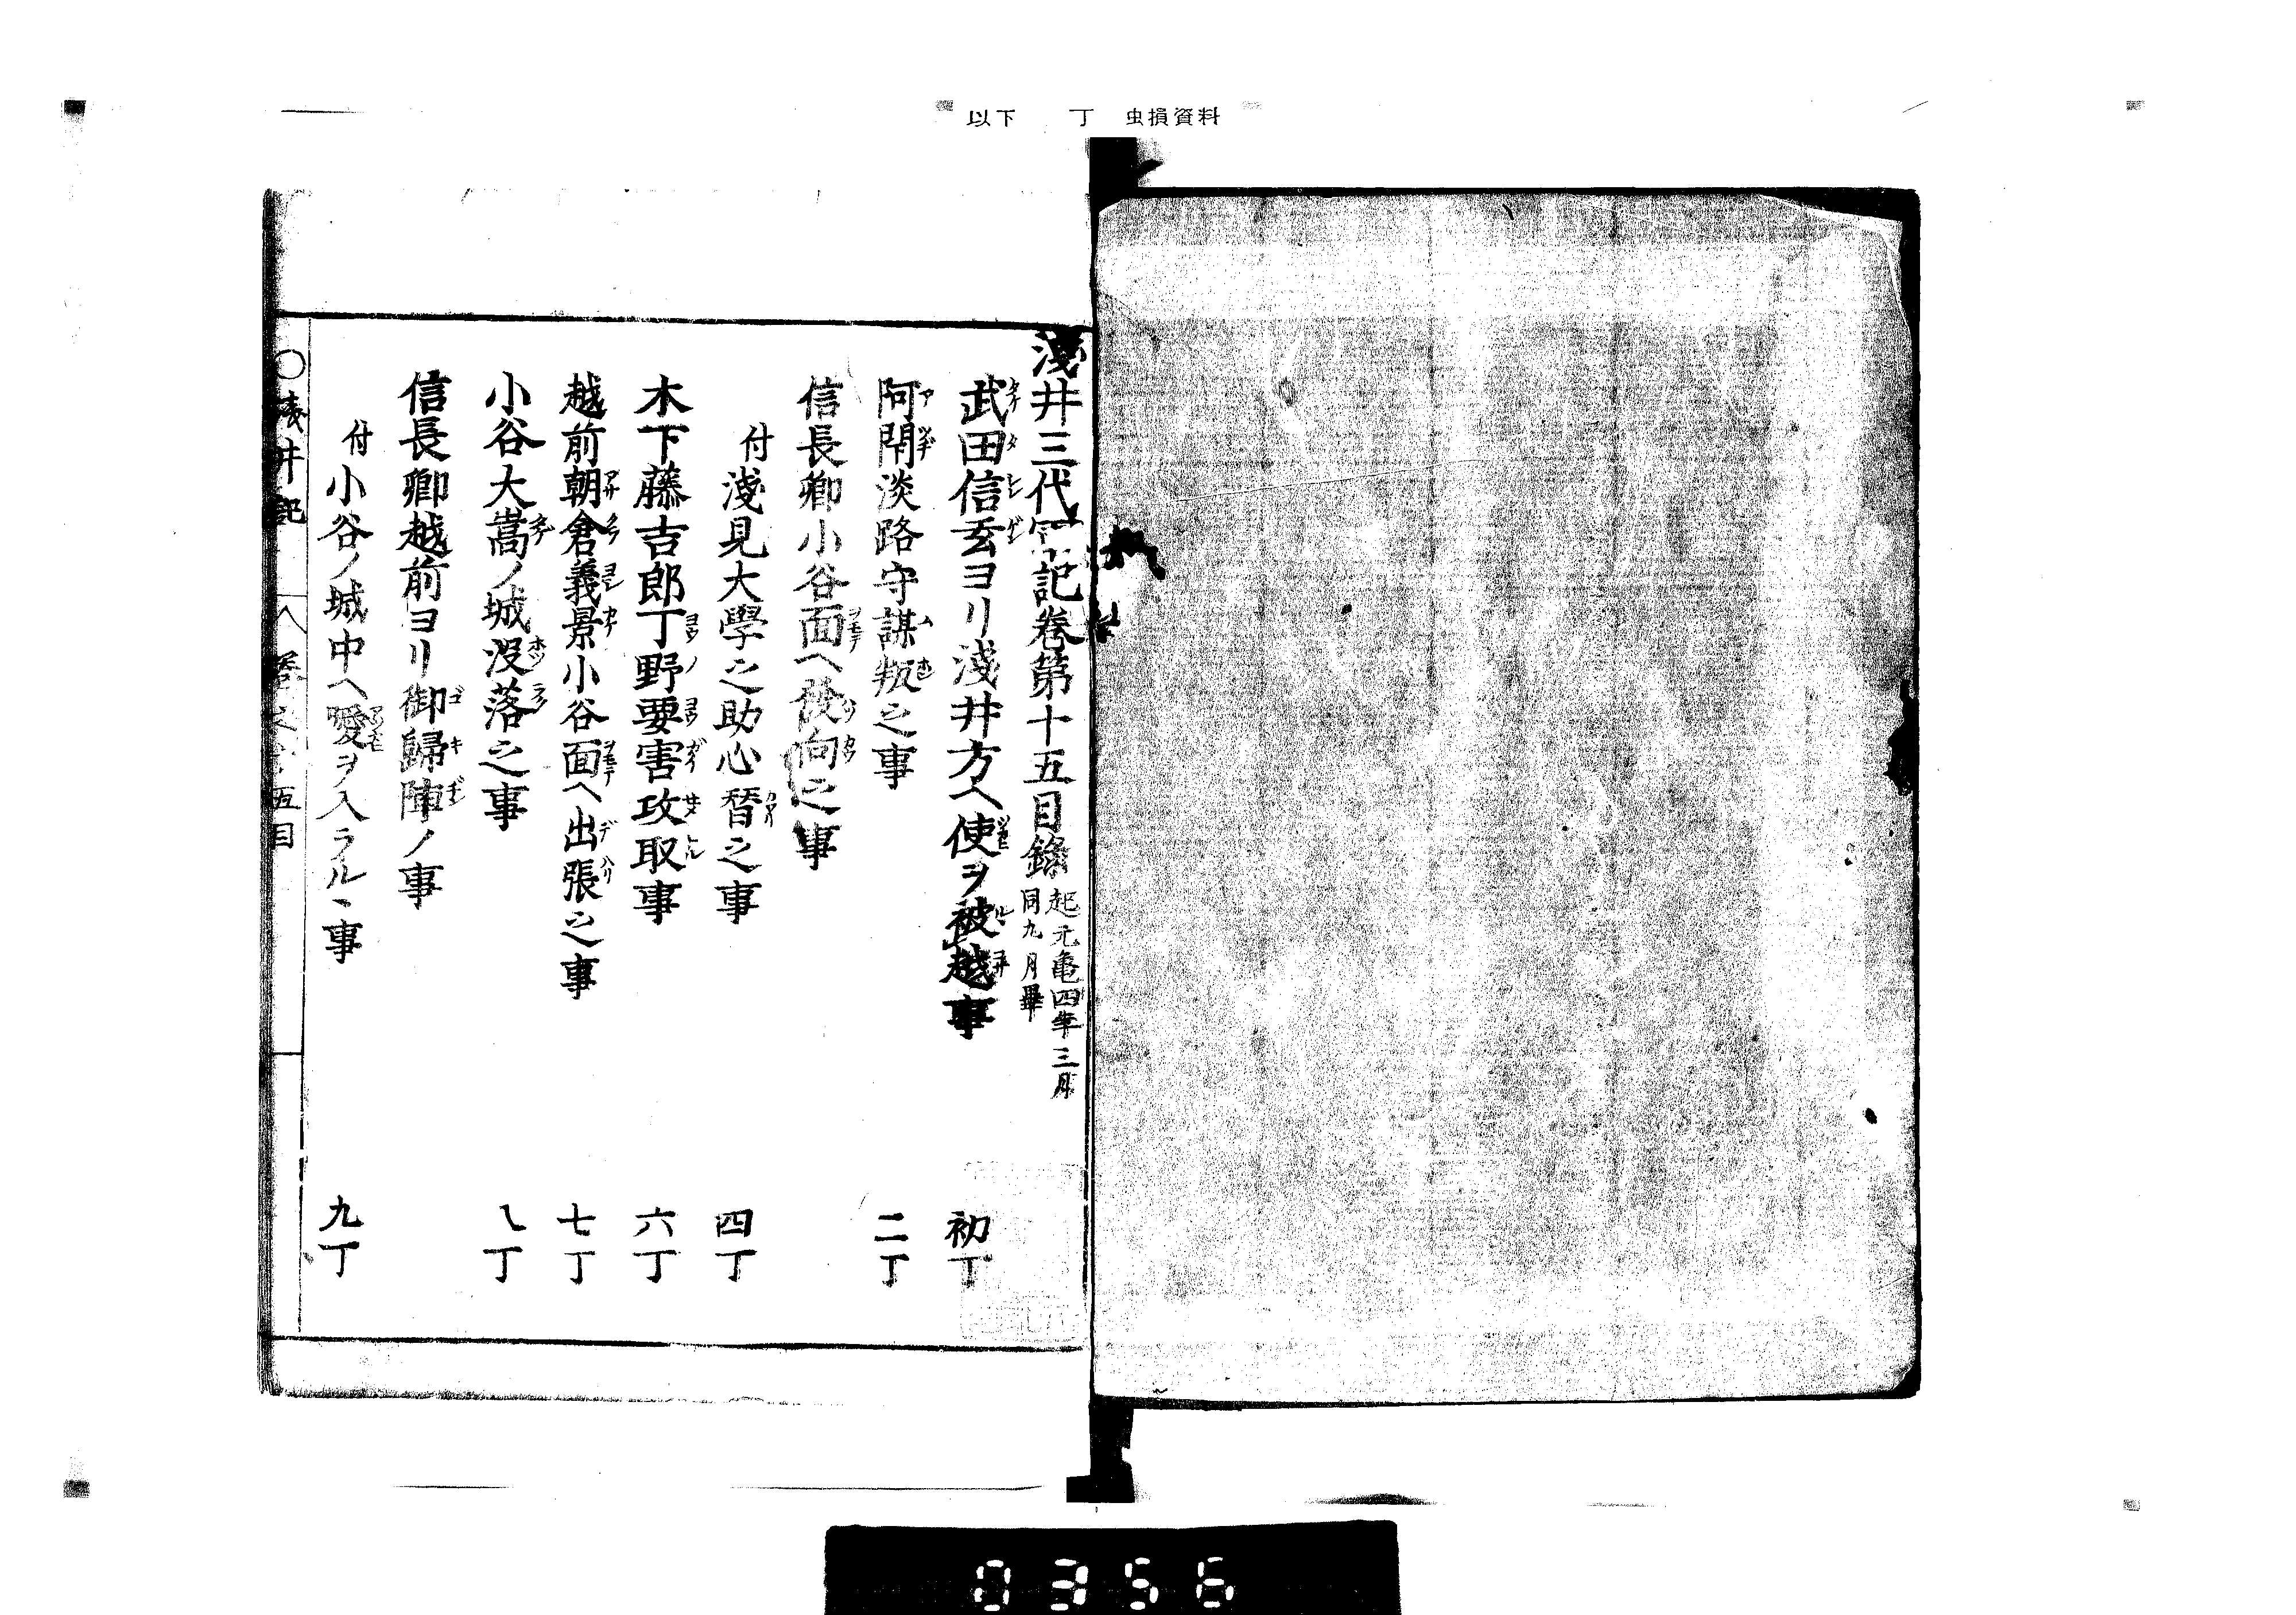 以下　丁　虫損資料
淺井三代軍記卷第十五目錄
起元亀四年三月
同九月畢
武田信玄ヨリ淺井方ヘ使ヲ被越事　初丁
阿閇淡路守謀叛之事　二丁
信長卿小谷面ヘ發向之事
付淺見大學之助心替之事　四丁
木下藤吉郎丁野要害攻取事　六丁
越前朝倉義景小谷面ヘ出張之事　七丁
小谷大嵩ノ城没落之事　八丁
信長卿越前ヨリ御歸陣ノ事
付小谷ノ城中ヘ噯ヲ入ラルヽ事　九丁
○淺井記　五目
0356